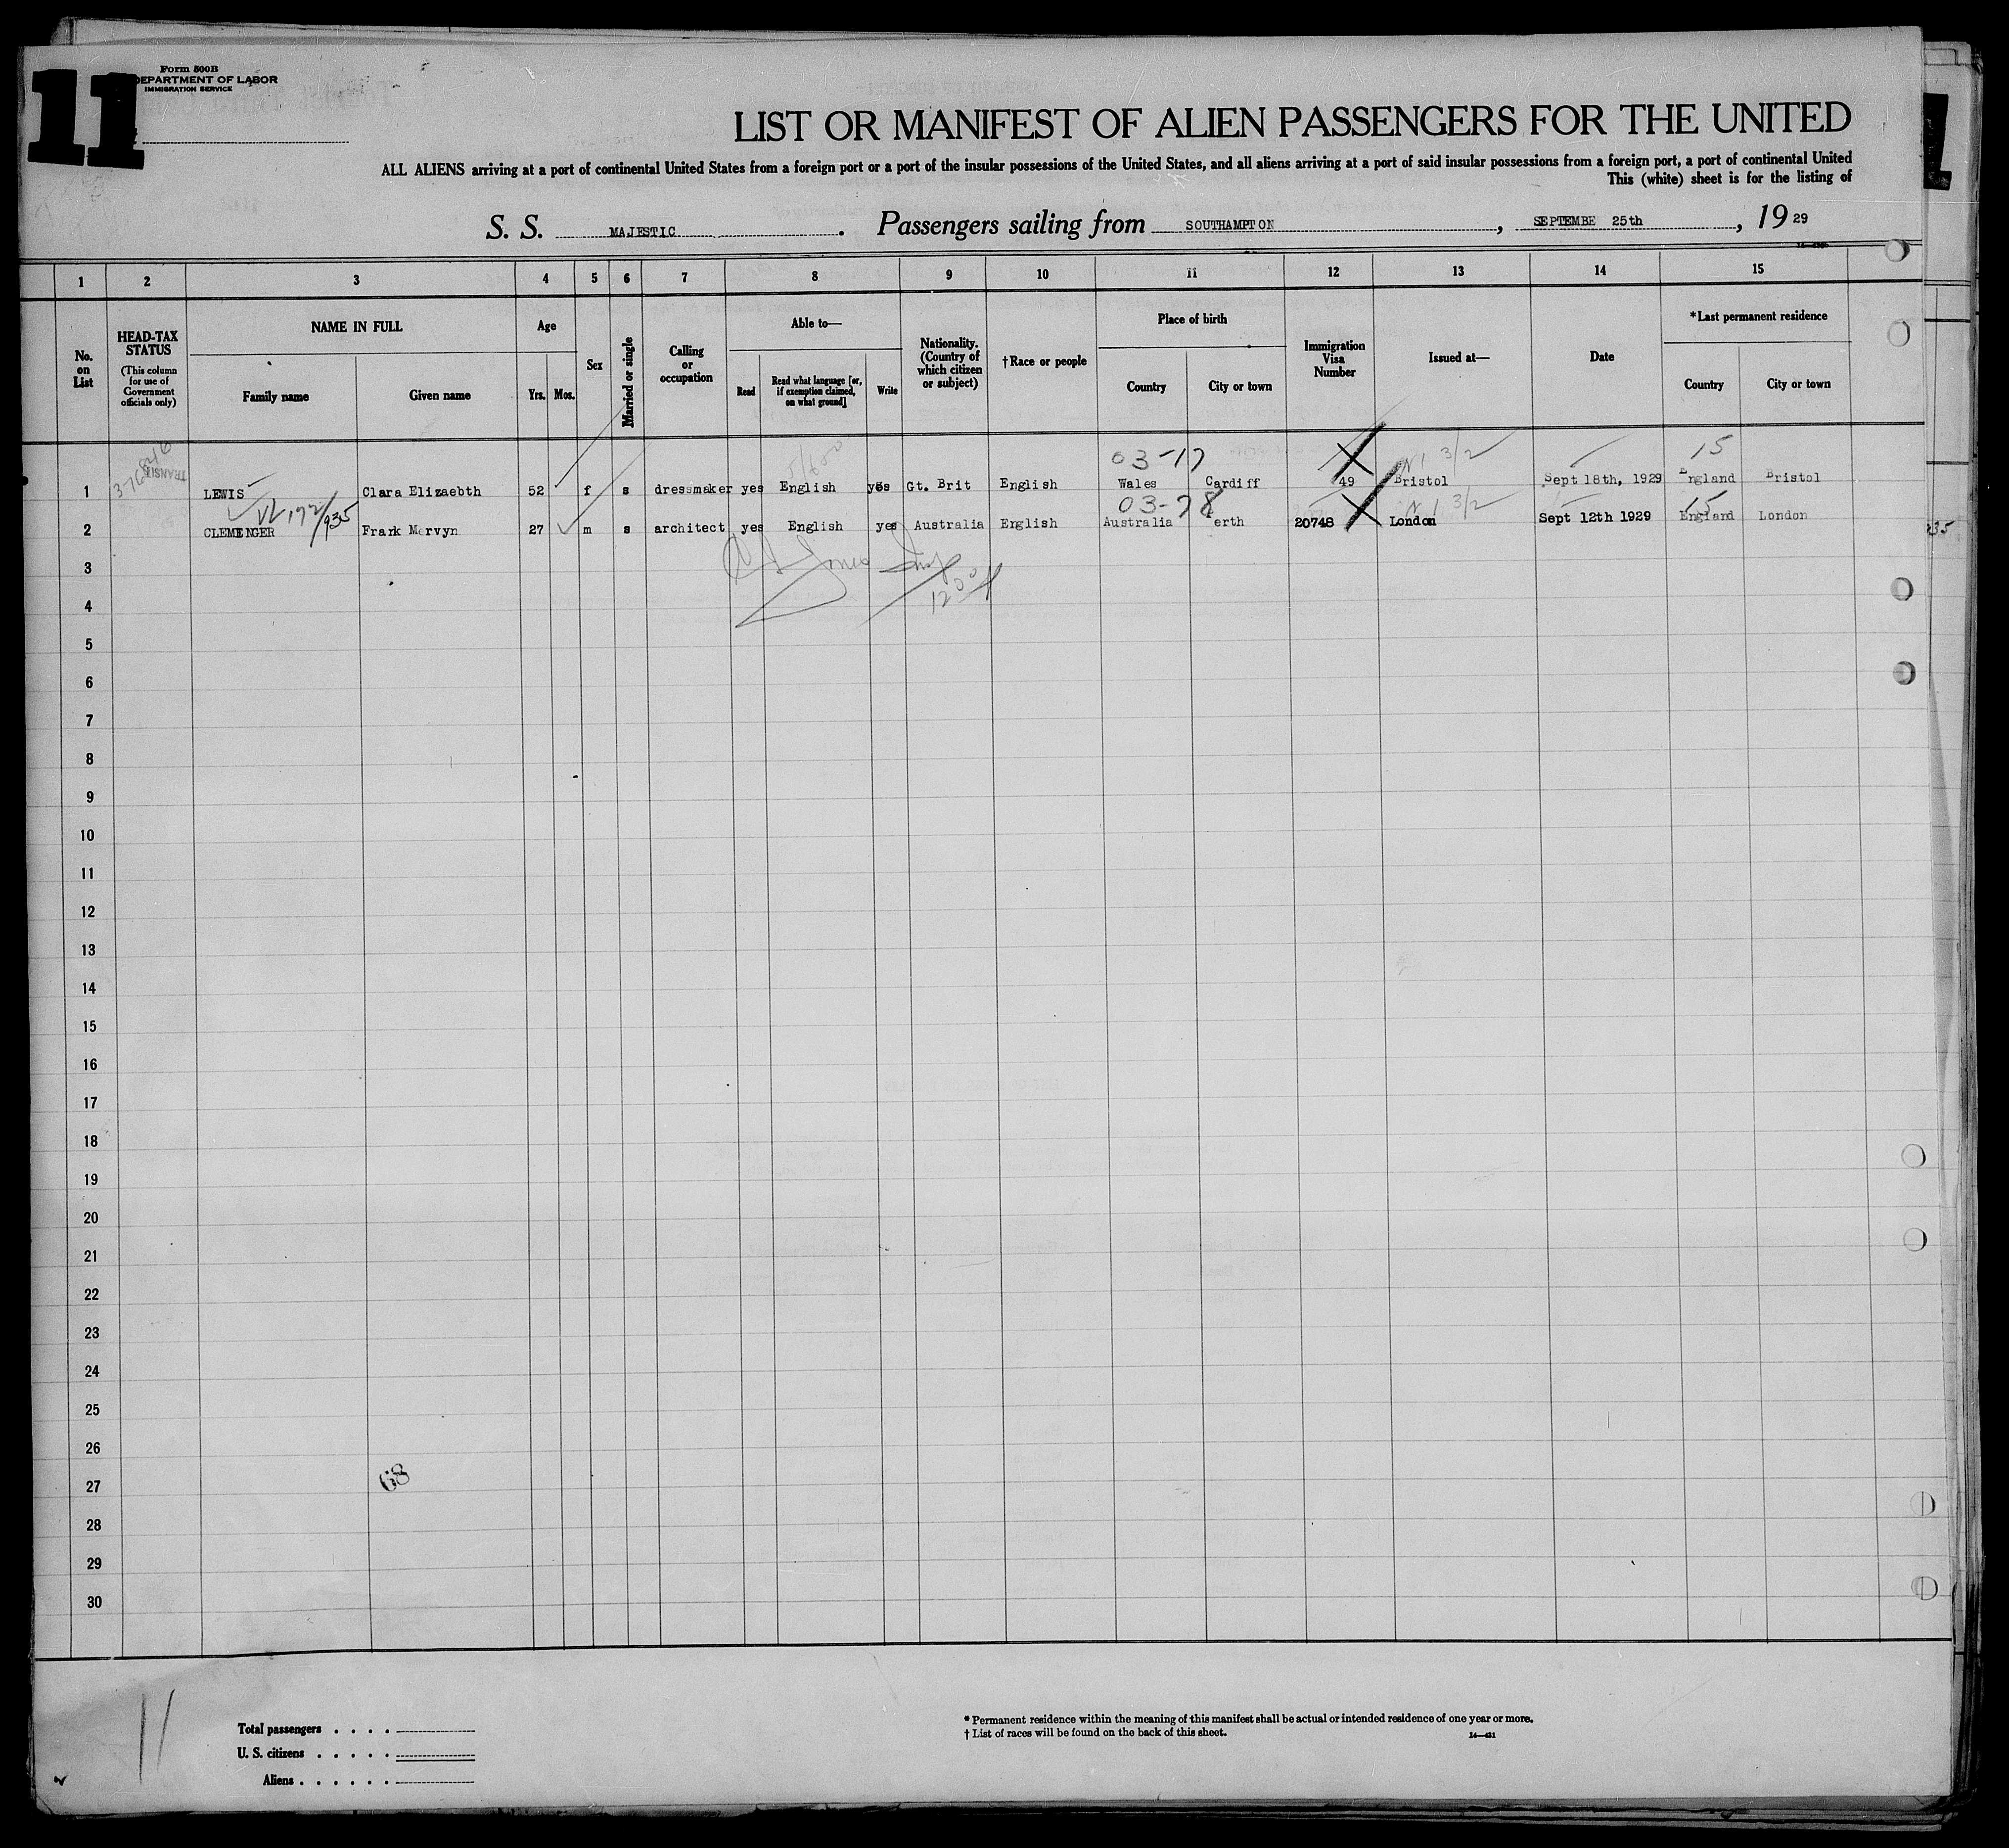 11
Form 500B
DEPARTMENT OF LABOR
IMMIGRATION SERVICE
LIST OR MANIFEST OF ALIEN PASSENGERS FOR THE UNITED
ALL ALIENS arriving at a port of continental United States from a foreign port or a port of the insular possessions of the United States, and all aliens arriving at a port of said insular possessions from a foreign port, a port of continental United
This (white) sheet is for the listing of
S. S. MAJESTIC . Passengers sailing from SOUTHAMPTON , SEPTEMBE 25th , 19 29
1 2 3 4 5 6 7 8 9 10 11 12 13 14 15
No. on List
HEAD-TAX STATUS (This column for use of Government officials only)
NAME IN FULL
Family name Given name
Age
Yrs. Mos.
Sex
Married or single
Calling or occupation
Able to—
Read Read what language [or, if exemption claimed, on what ground] Write
Nationality. (Country of which citizen or subject)
†Race or people
Place of birth
Country City or town
Immigration Visa Number
Issued at—
Date
*Last permanent residence
Country City or town
TRANSIT
03-17 15
1 LEWIS Clara Elizaebth 52 f s dressmaker yes English yes Gt. Brit English Wales Cardiff 49 Bristol Sept 18th, 1929 England Bristol
03-78 15
2 CLEMENGER Frank Mervyn 27 m s architect yes English yes Australia English Australia Perth 20748 London Sept 12th 1929 England London
3
4
5
6
7
8
9
10
11
12
13
14
15
16
17
18
19
20
21
22
23
24
25
26
27
28
29
30
68
11
Total passengers . . . .
U. S. citizens . . . . .
Aliens . . . . . .
* Permanent residence within the meaning of this manifest shall be actual or intended residence of one year or more.
† List of races will be found on the back of this sheet.